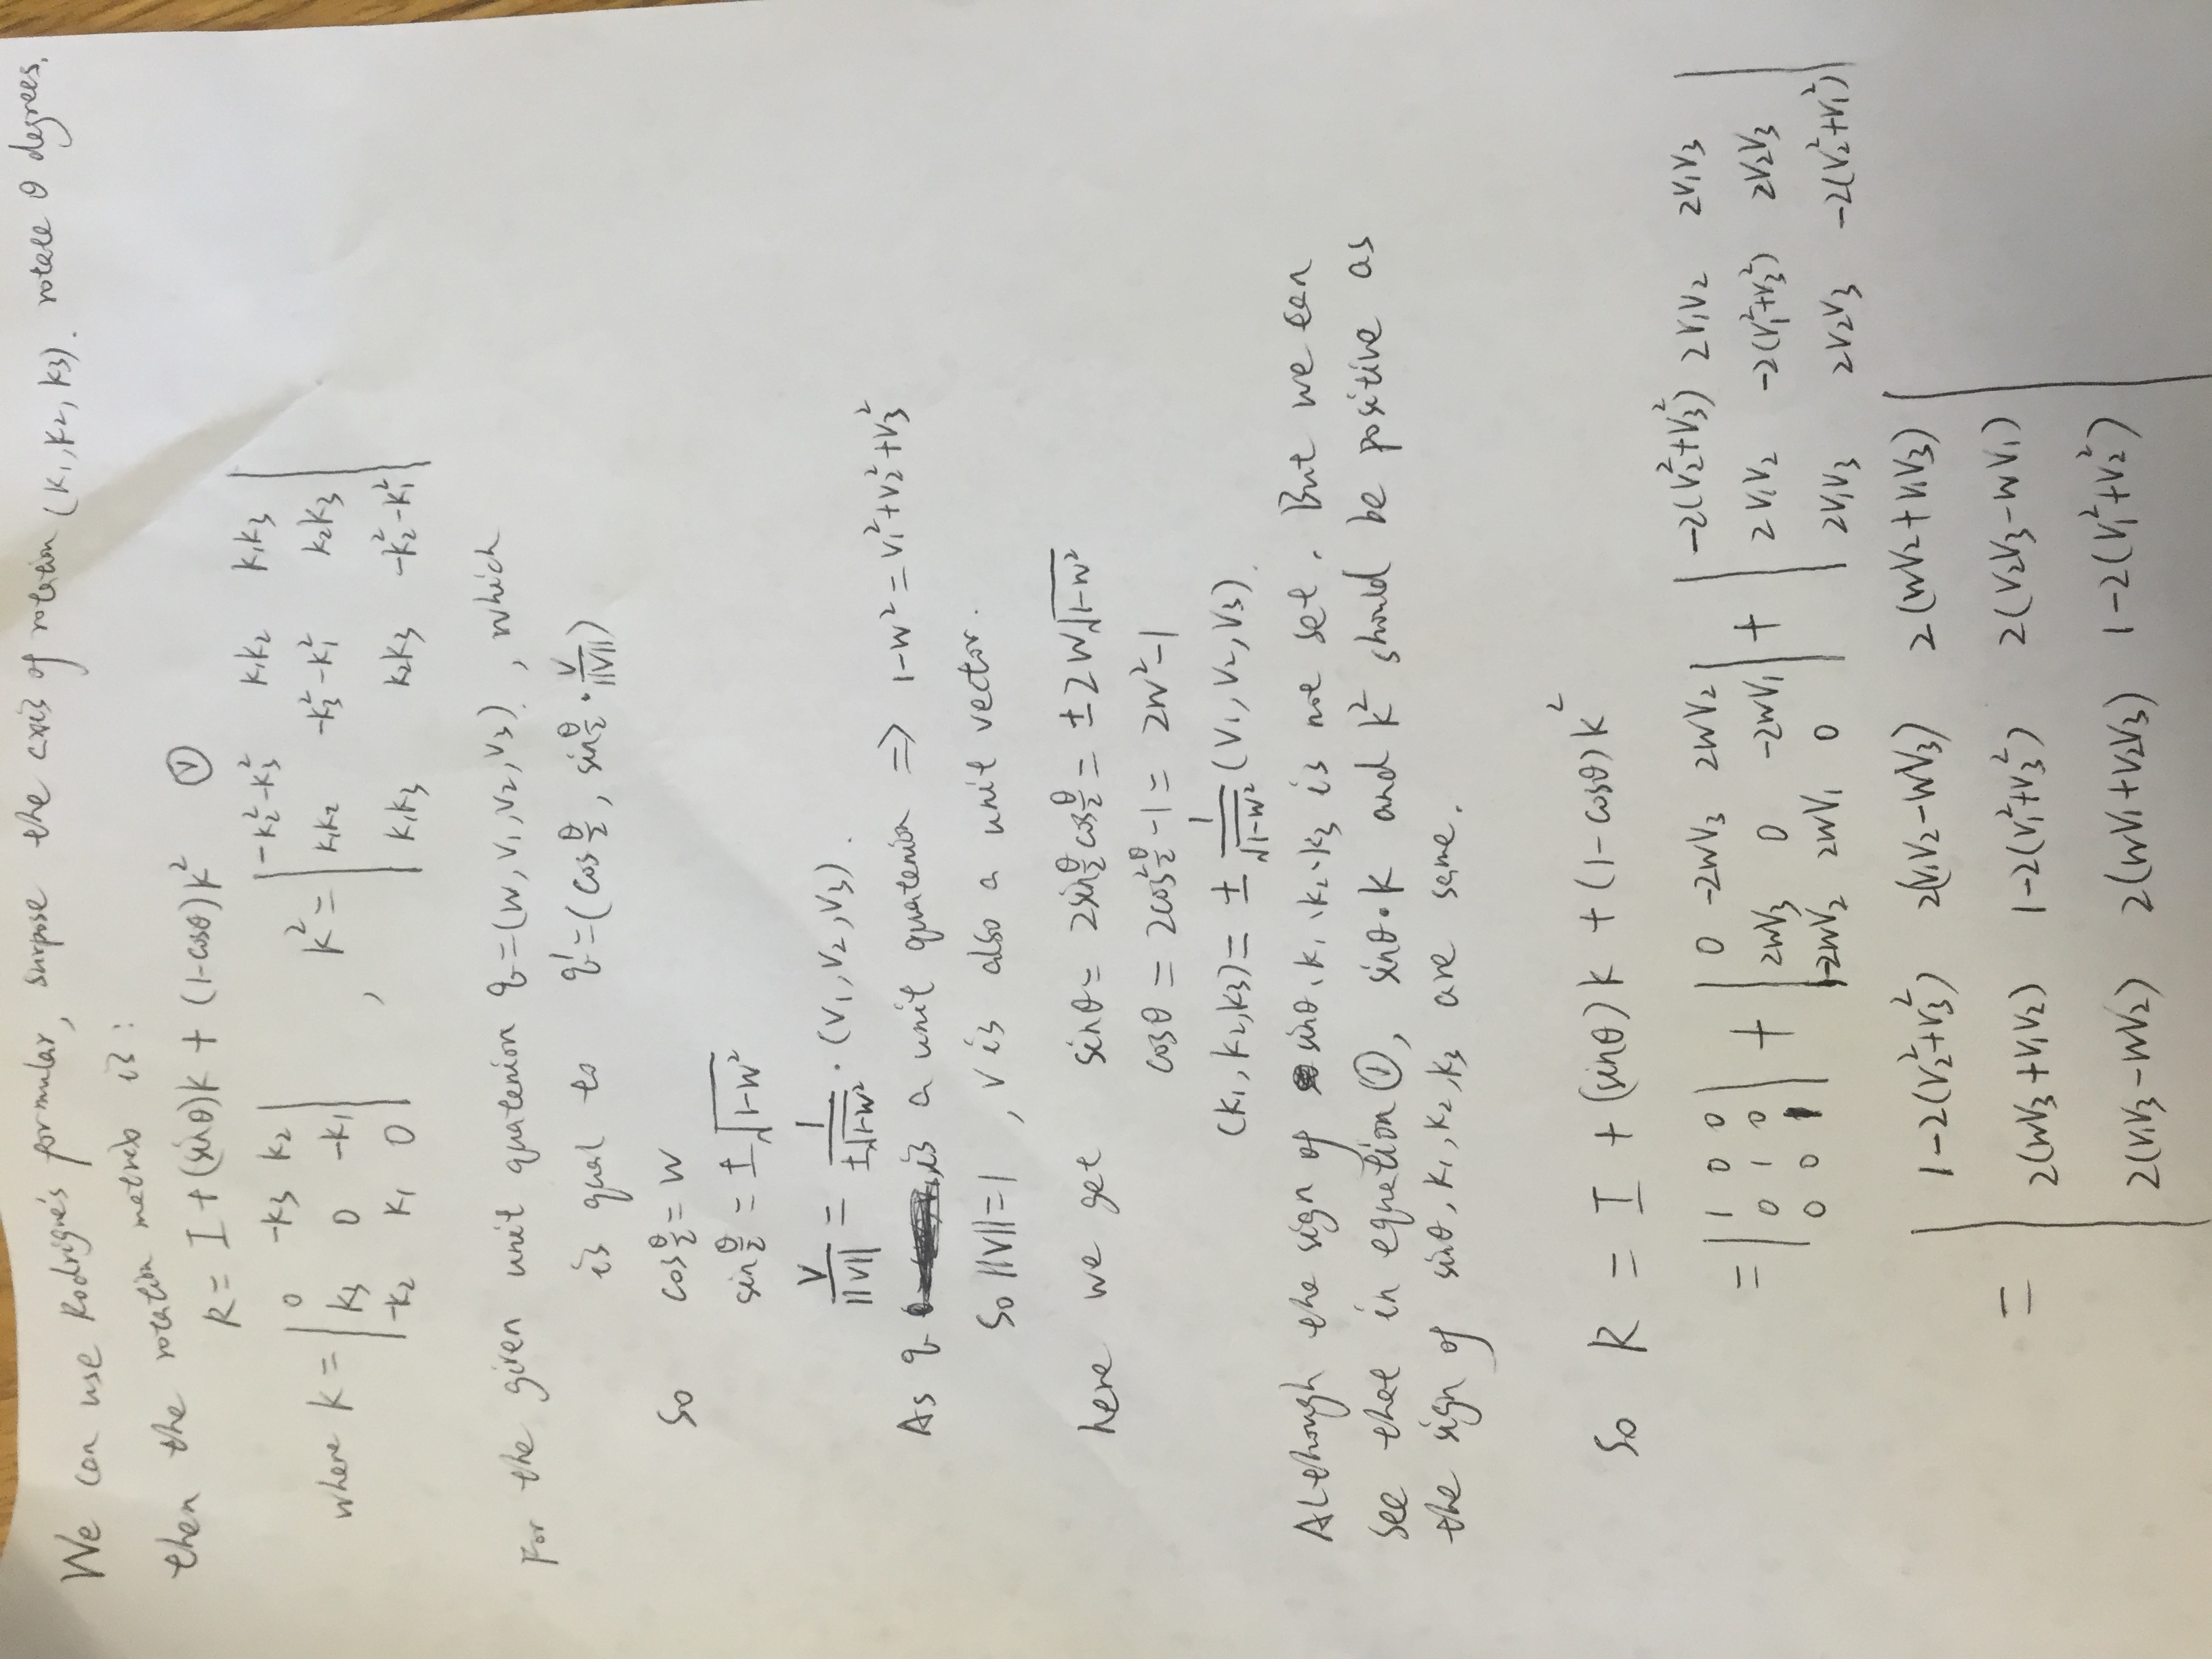 We can use Rodrigue's formular, surpose the axis of rotation (k₁,k₂,k₃). rotate θ degrees.
then the rotation metrix is:
R = I + (sinθ)k + (1-cosθ)k² ①
where k = | 0 -k₃ k₂ | , k² = | -k₂²-k₃² k₁k₂ k₁k₃ |
| k₃ 0 -k₁ | | k₁k₂ -k₃²-k₁² k₂k₃ |
| -k₂ k₁ 0 | | k₁k₃ k₂k₃ -k₂²-k₁² |
For the given unit quatenion q=(w,v₁,v₂,v₃). , which
is qual to q'=(cos θ/2, sin θ/2 · V/||V||)
So cos θ/2 = w
sin θ/2 = ±√(1-w²)
V/||V|| = 1/(±√(1-w²)) · (v₁,v₂,v₃).
As q is a unit quatenion ⇒ 1-w² = v₁²+v₂²+v₃²
So ||V||=1 , V is also a unit vector.
here we get sinθ = 2sin θ/2 cos θ/2 = ±2w√(1-w²)
cosθ = 2cos² θ/2 -1 = 2w²-1
(k₁,k₂,k₃) = ± 1/√(1-w²) (v₁,v₂,v₃).
Although the sign of sinθ、k₁、k₂、k₃ is not set. But we can
see that in equation ①, sinθ·k and k² should be positive as
the sign of sinθ, k₁, k₂, k₃ are same.
So R = I + (sinθ)k + (1-cosθ)k²
= | 1 0 0 | + | 0 -2wv₃ 2wv₂ | + | -2(v₂²+v₃²) 2v₁v₂ 2v₁v₃ |
| 0 1 0 | | 2wv₃ 0 -2wv₁ | | 2v₁v₂ -2(v₁²+v₃²) 2v₂v₃ |
| 0 0 1 | | -2wv₂ 2wv₁ 0 | | 2v₁v₃ 2v₂v₃ -2(v₂²+v₁²) |
= | 1-2(v₂²+v₃²) 2(v₁v₂-wv₃) 2(wv₂+v₁v₃) |
| 2(wv₃+v₁v₂) 1-2(v₁²+v₃²) 2(v₂v₃-wv₁) |
| 2(v₁v₃-wv₂) 2(wv₁+v₂v₃) 1-2(v₁²+v₂²) |